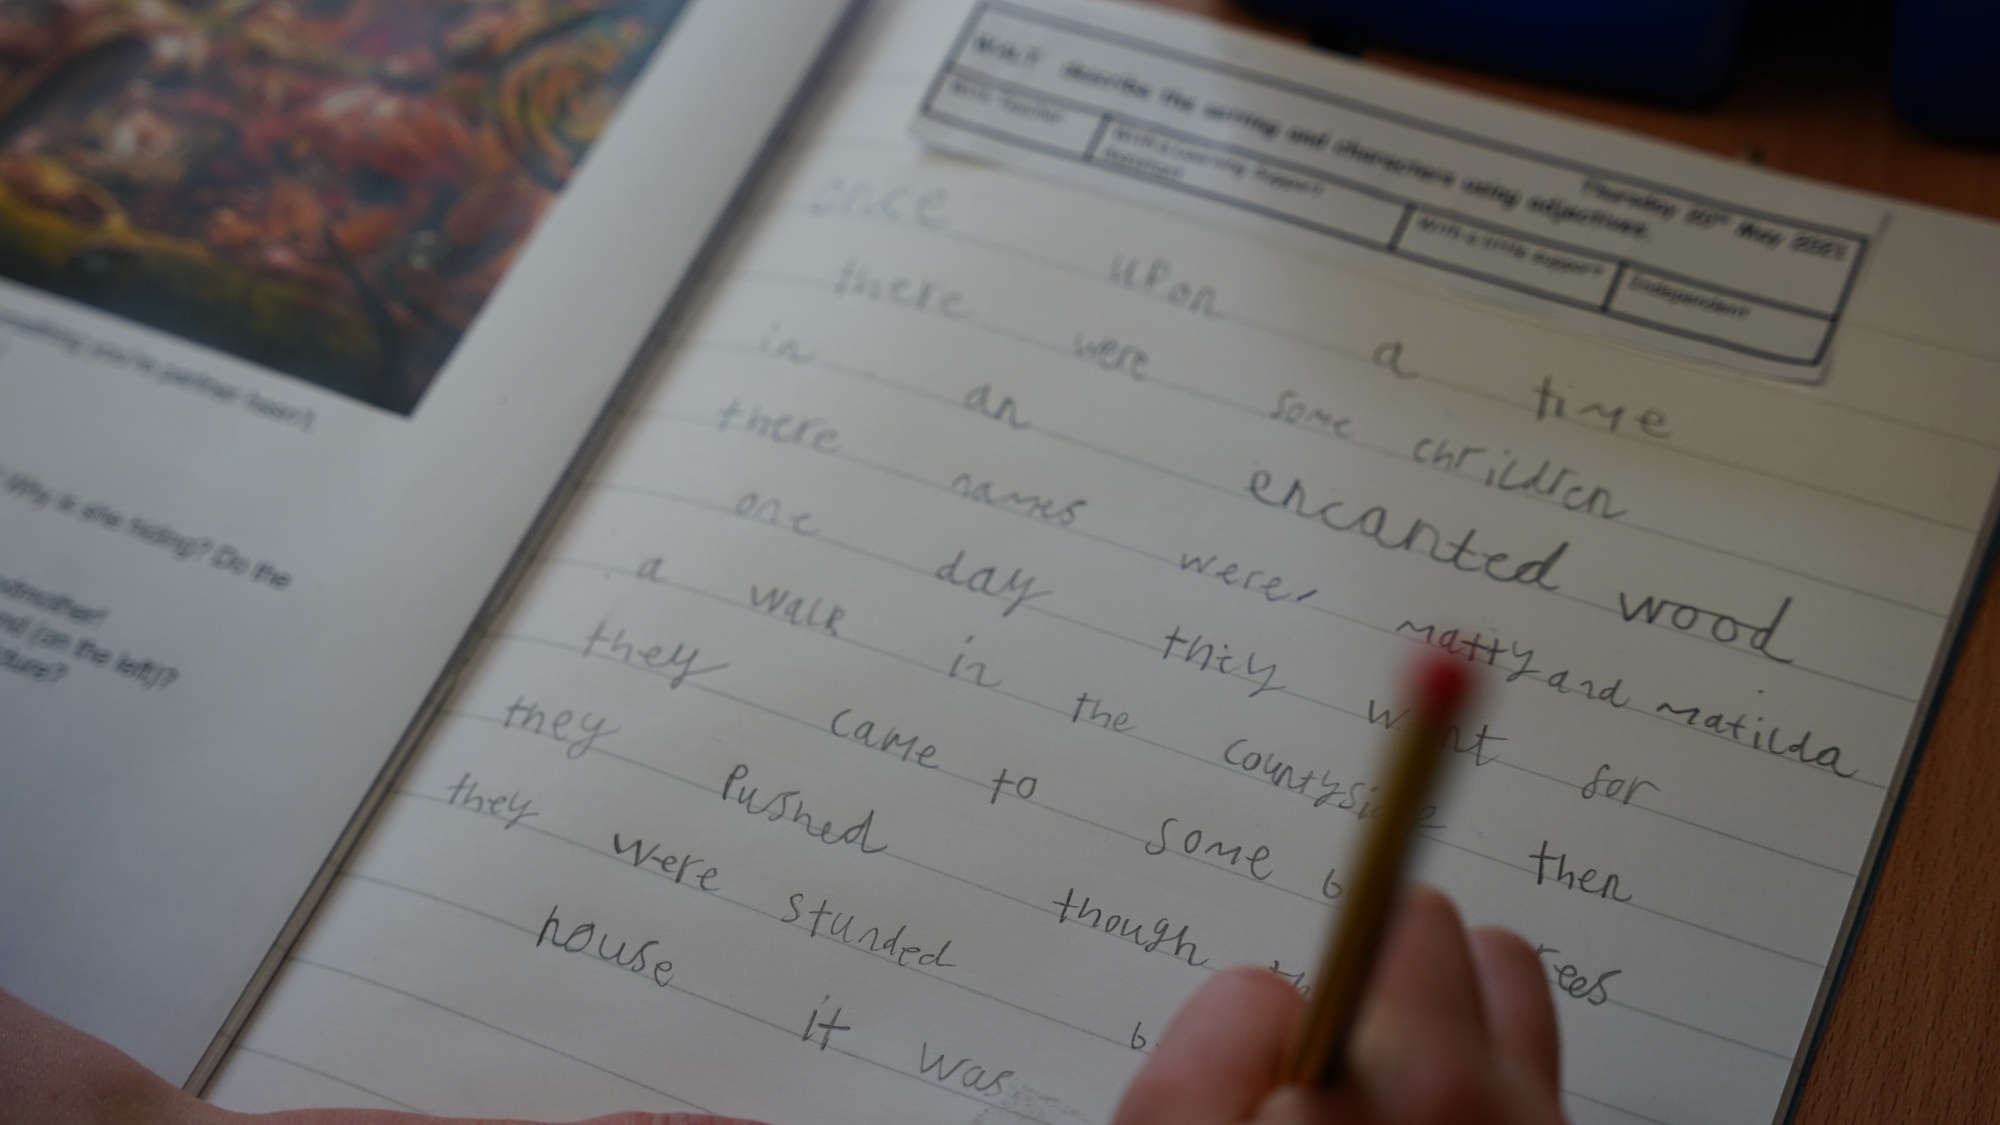 something you're partner hasn't
Why is she hiding? Do the
(on the left)?
W.A.L.T describe the setting and characters using adjectives.
Thursday 20th May 2021
With Teacher
With a Learning Support Assistant
With a little support
Independent
once upon a time
there were some chrildren
in an encanted wood
there names were, matty and matilda
one day they went for
a walk in the countyside then
they came to some rees
they pushed though
they were stunded
house it was